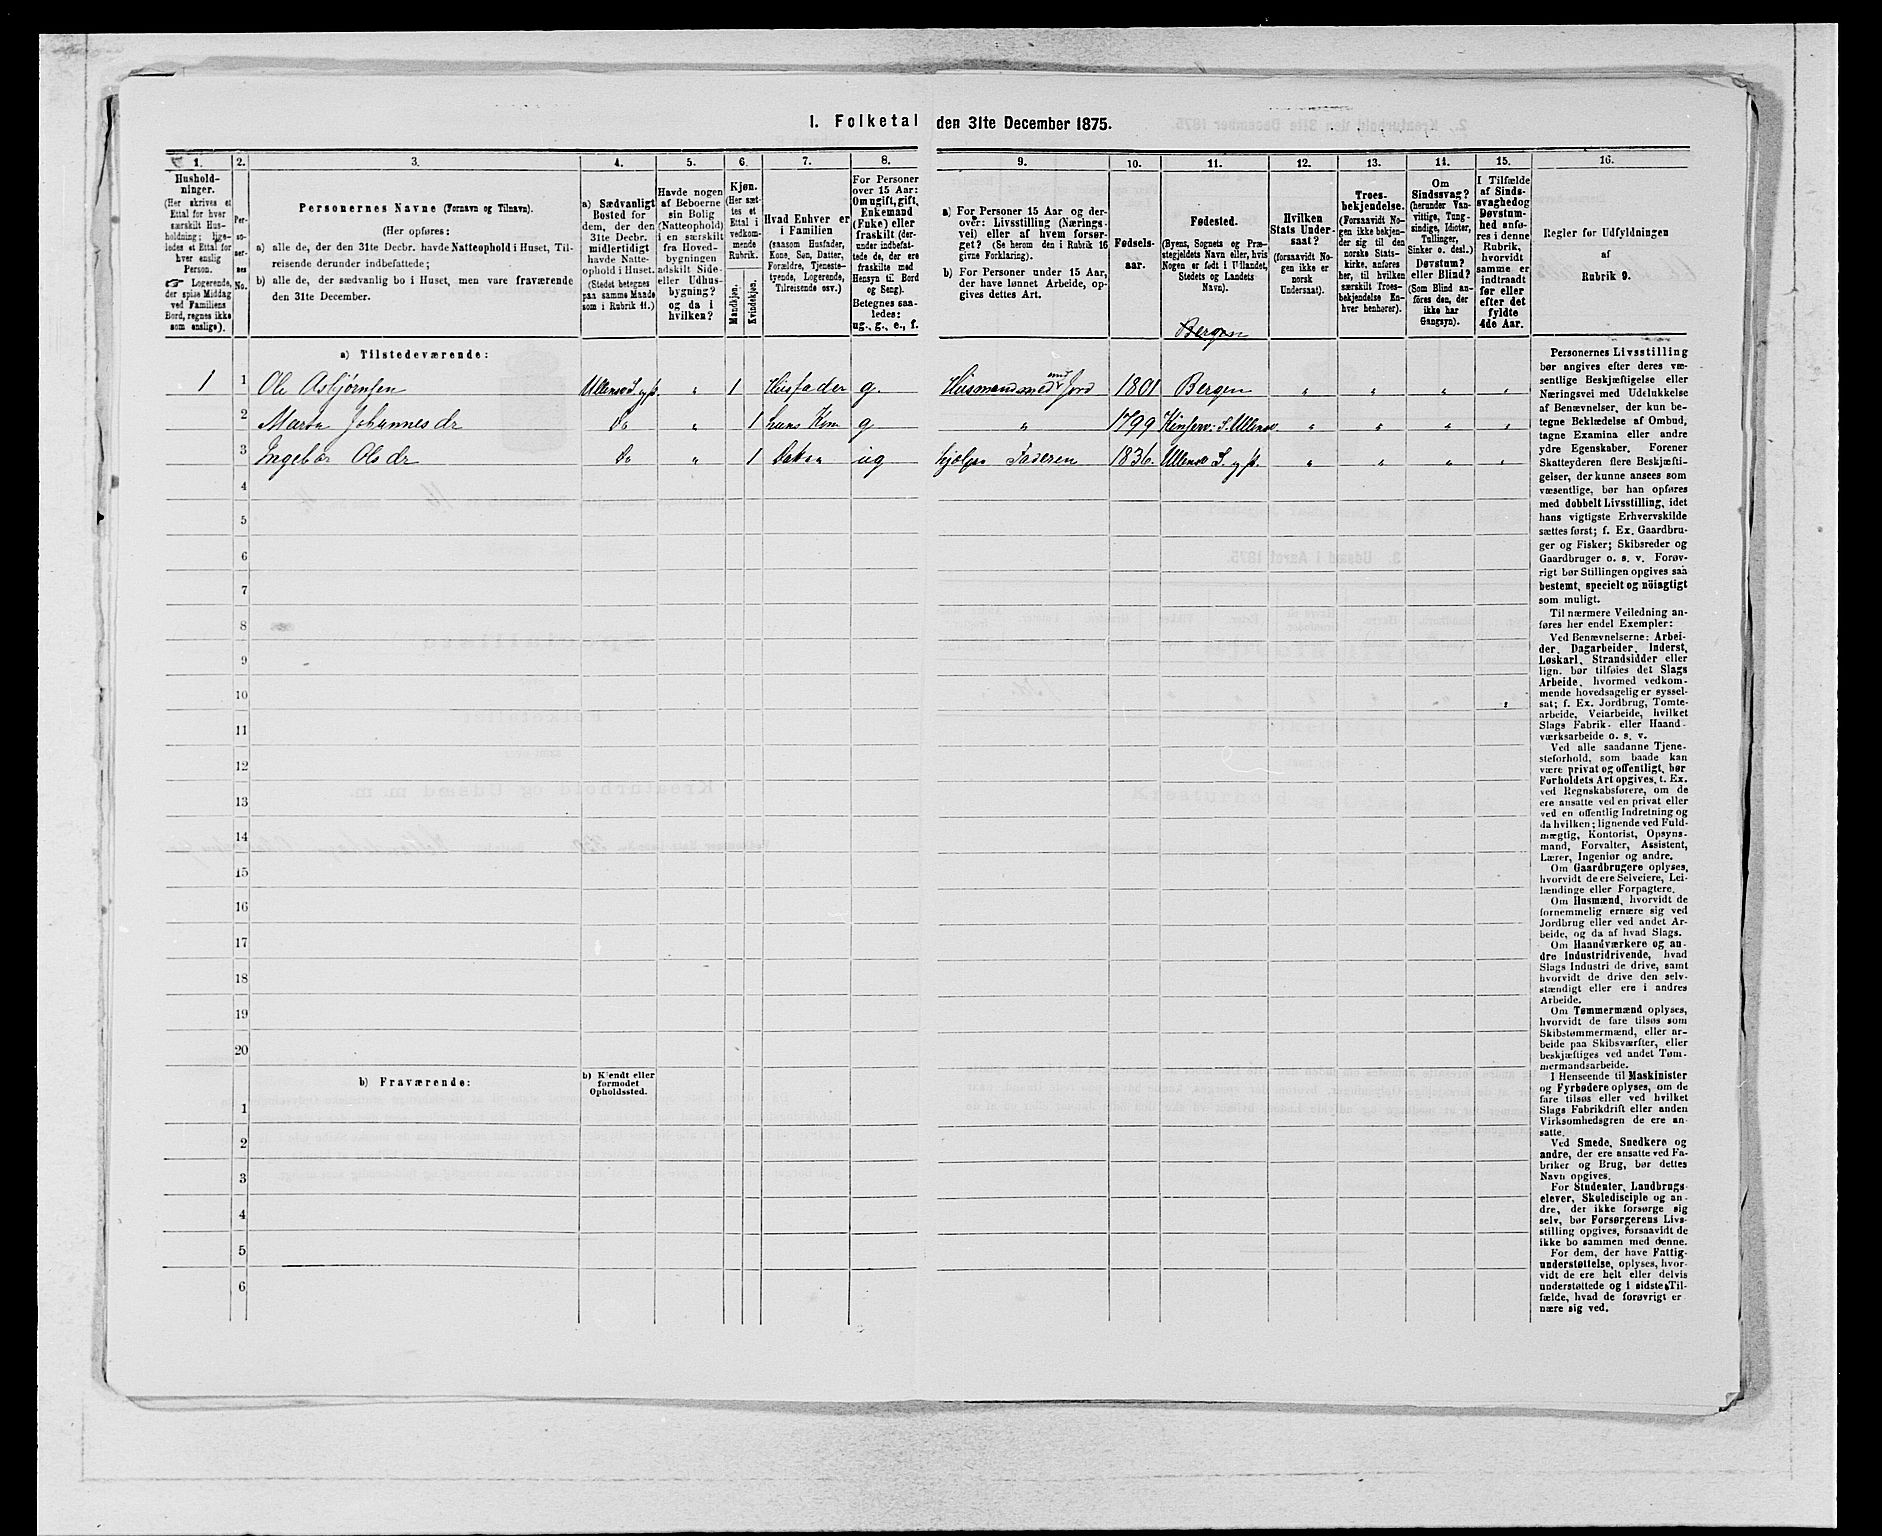 1. Folketal den 31te December 1875.
1. 2. 3. 4. 5. 6. 7. 8. 9. 10. 11. 12. 13. 14. 15. 16.
Hushold-
ninger.
(Her skrives et
Ettal for hver
særskilt Hus-
holdning; lige-
ledes et Ettal for
hver enslig
Person.
☛ Logerende,
der spise Middag
ved Familiens
Bord, regnes ikke
som enslige).
Per-
so-
ner-
nes
No.
Personernes Navne (Fornavn og Tilnavn).
(Her opføres:
a) alle de, der den 31te Decbr. havde Natteophold i Huset, Til-
reisende derunder indbefattede;
b) alle de, der sædvanlig bo i Huset, men vare fraværende
den 31te December.
a) Sædvanligt
Bosted for
dem, der den
31te Decbr.
midlertidigt
havde Natte-
ophold i Huset.
(Stedet betegnes
paa samme Maade
som i Rubrik 11.)
Havde nogen
af Beboerne
sin Bolig
(Natteophold)
i en særskilt
fra Hoved-
bygningen
adskilt Side-
eller Udhus-
bygning?
og da i
hvilken?
Kjøn.
(Her sæt-
tes et
Ettal i
vedkom-
mende
Rubrik.
Mandkjøn.
Kvindekjøn.
Hvad Enhver er
i Familien
(saasom Husfader,
Kone, Søn, Datter,
Forældre, Tjeneste-
tyende, Logerende,
Tilreisende osv.)
For Personer
over 15 Aar:
Om ugift, gift,
Enkemand
(Enke) eller
fraskilt (der-
under indbefat-
tede de, der ere
fraskilte med
Hensyn til Bord
og Seng).
Betegnes saa-
ledes:
ug., g., e., f.
a) For Personer 15 Aar og der-
over: Livsstilling (Nærings-
vei) eller af hvem forsør-
get? (Se herom den i Rubrik 16
givne Forklaring).
b) For Personer under 15 Aar,
der have lønnet Arbeide, op-
gives dettes Art.
Fødsels-
aar.
Fødested.
(Byens, Sognets og Præ-
stegjeldets Navn eller, hvis
Nogen er født i Udlandet,
Stedets og Landets
Navn).
Hvilken
Stats Under-
saat?
(forsaavidt No-
gen ikke er
norsk
Undersaat).
Troes-
bekjendelse.
(Forsaavidt No-
gen ikke bekjen-
der sig til den
norske Stats-
kirke, anføres
her, til hvilken
særskilt Troes-
bekjendelse En-
hver henhører).
Om
Sindssvag?
(herunder Van-
vittige, Tung-
sindige, Idioter,
Tullinger,
Sinker o. desl.)
Døvstum?
eller Blind?
(Som Blind an-
føres den, der
ikke har
Gangsyn).
I Tilfælde
af Sinds-
svaghed og
Døvstum-
hed anfø-
res i denne
Rubrik,
hvorvidt
samme er
indtraadt
før eller
efter det
fyldte
4de Aar.
Regler for Udfyldningen
af
Rubrik 9.
Bergen
a) Tilstedeværende:
1 1 Ole Asbjørnsen Ullensv. S. og P. „ 1 Husfader g. Husmand med Jord 1801 Bergen „ „ „ „
2 Marta Johannesdr Do „ 1 hans Kone g „ 1799 Kinserv: S. Ullensv. „ „ „ „
3 Ingebor Olsdr Do „ 1 Datter ug hjelper Faderen 1836. Ullensv S. og P. „ „ „ „
4
5
6
7
8
9
10
11
12
13
14
15
16
17
18
19
20
b) Fraværende:
b) Kjendt eller
formodet
Opholdssted.
1
2
3
4
5
6
Personernes Livsstilling
bør angives efter deres væ-
sentlige Beskjæftigelse eller
Næringsvei med Udelukkelse
af Benævnelser, der kun be-
tegne Beklædelse af Ombud,
tagne Examina eller andre
ydre Egenskaber. Forener
Skatteyderen flere Beskjæfti-
gelser, der kunne ansees som
væsentlige, bør han opføres
med dobbelt Livsstilling, idet
hans vigtigste Erhvervskilde
sættes først; f. Ex. Gaardbru-
ger og Fisker; Skibsreder og
Gaardbruger o. s. v. Forøv-
rigt bør Stillingen opgives saa
bestemt, specielt og nöiagtigt
som muligt.
Til nærmere Veiledning an-
føres her endel Exempler:
Ved Benævnelserne: Arbei-
der, Dagarbeider, Inderst,
Løskarl, Strandsidder eller
lign. bør tilføies det Slags
Arbeide, hvormed vedkom-
mende hovedsagelig er syssel-
sat; f. Ex. Jordbrug, Tomte-
arbeide, Veiarbeide, hvilket
Slags Fabrik- eller Haand-
værksarbeide o. s. v.
Ved alle saadanne Tjene-
steforhold, som baade kan
være privat og offentligt, bør
Forholdets Art opgives, t. Ex.
ved Regnskabsførere, om de
ere ansatte ved en privat eller
ved en offentlig Indretning og
da hvilken; lignende ved Fuld-
mægtig, Kontorist, Opsyns-
mand, Forvalter, Assistent,
Lærer, Ingeniør og andre.
Om Gaardbrugere oplyses,
hvorvidt de ere Selveiere, Lei-
lændinge eller Forpagtere.
Om Husmænd, hvorvidt de
fornemmelig ernære sig ved
Jordbrug eller ved andet Ar-
beide, og da af hvad Slags.
Om Haandværkere og an-
dre Industridrivende, hvad
Slags Industri de drive, samt
hvorvidt de drive den selv-
stændigt eller ere i andres
Arbeide.
Om Tømmermænd oplyses,
hvorvidt de fare tilsøs som
Skibstømmermænd, eller ar-
beide paa Skibsværfter, eller
beskjæftiges ved andet Tøm-
mermandsarbeide.
I Henseende til Maskinister
og Fyrbødere oplyses, om de
fare tilsøs eller ved hvilket
Slags Fabrikdrift eller anden
Virksomhedsgren de ere an-
satte.
Ved Smede, Snedkere og
andre, der ere ansatte ved Fa-
briker og Brug, bør dettes
Navn opgives.
For Studenter, Landbrugs-
elever, Skoledisciple og an-
dre, der ikke forsørge sig
selv, bør Forsørgerens Livs-
stilling opgives, forsaavidt de
ikke bo sammen med denne.
For dem, der have Fattig-
understøttelse, oplyses, hvor-
vidt de ere helt eller delvis
understøttede og i sidste Til-
fælde, hvad de forøvrigt er-
nære sig ved.